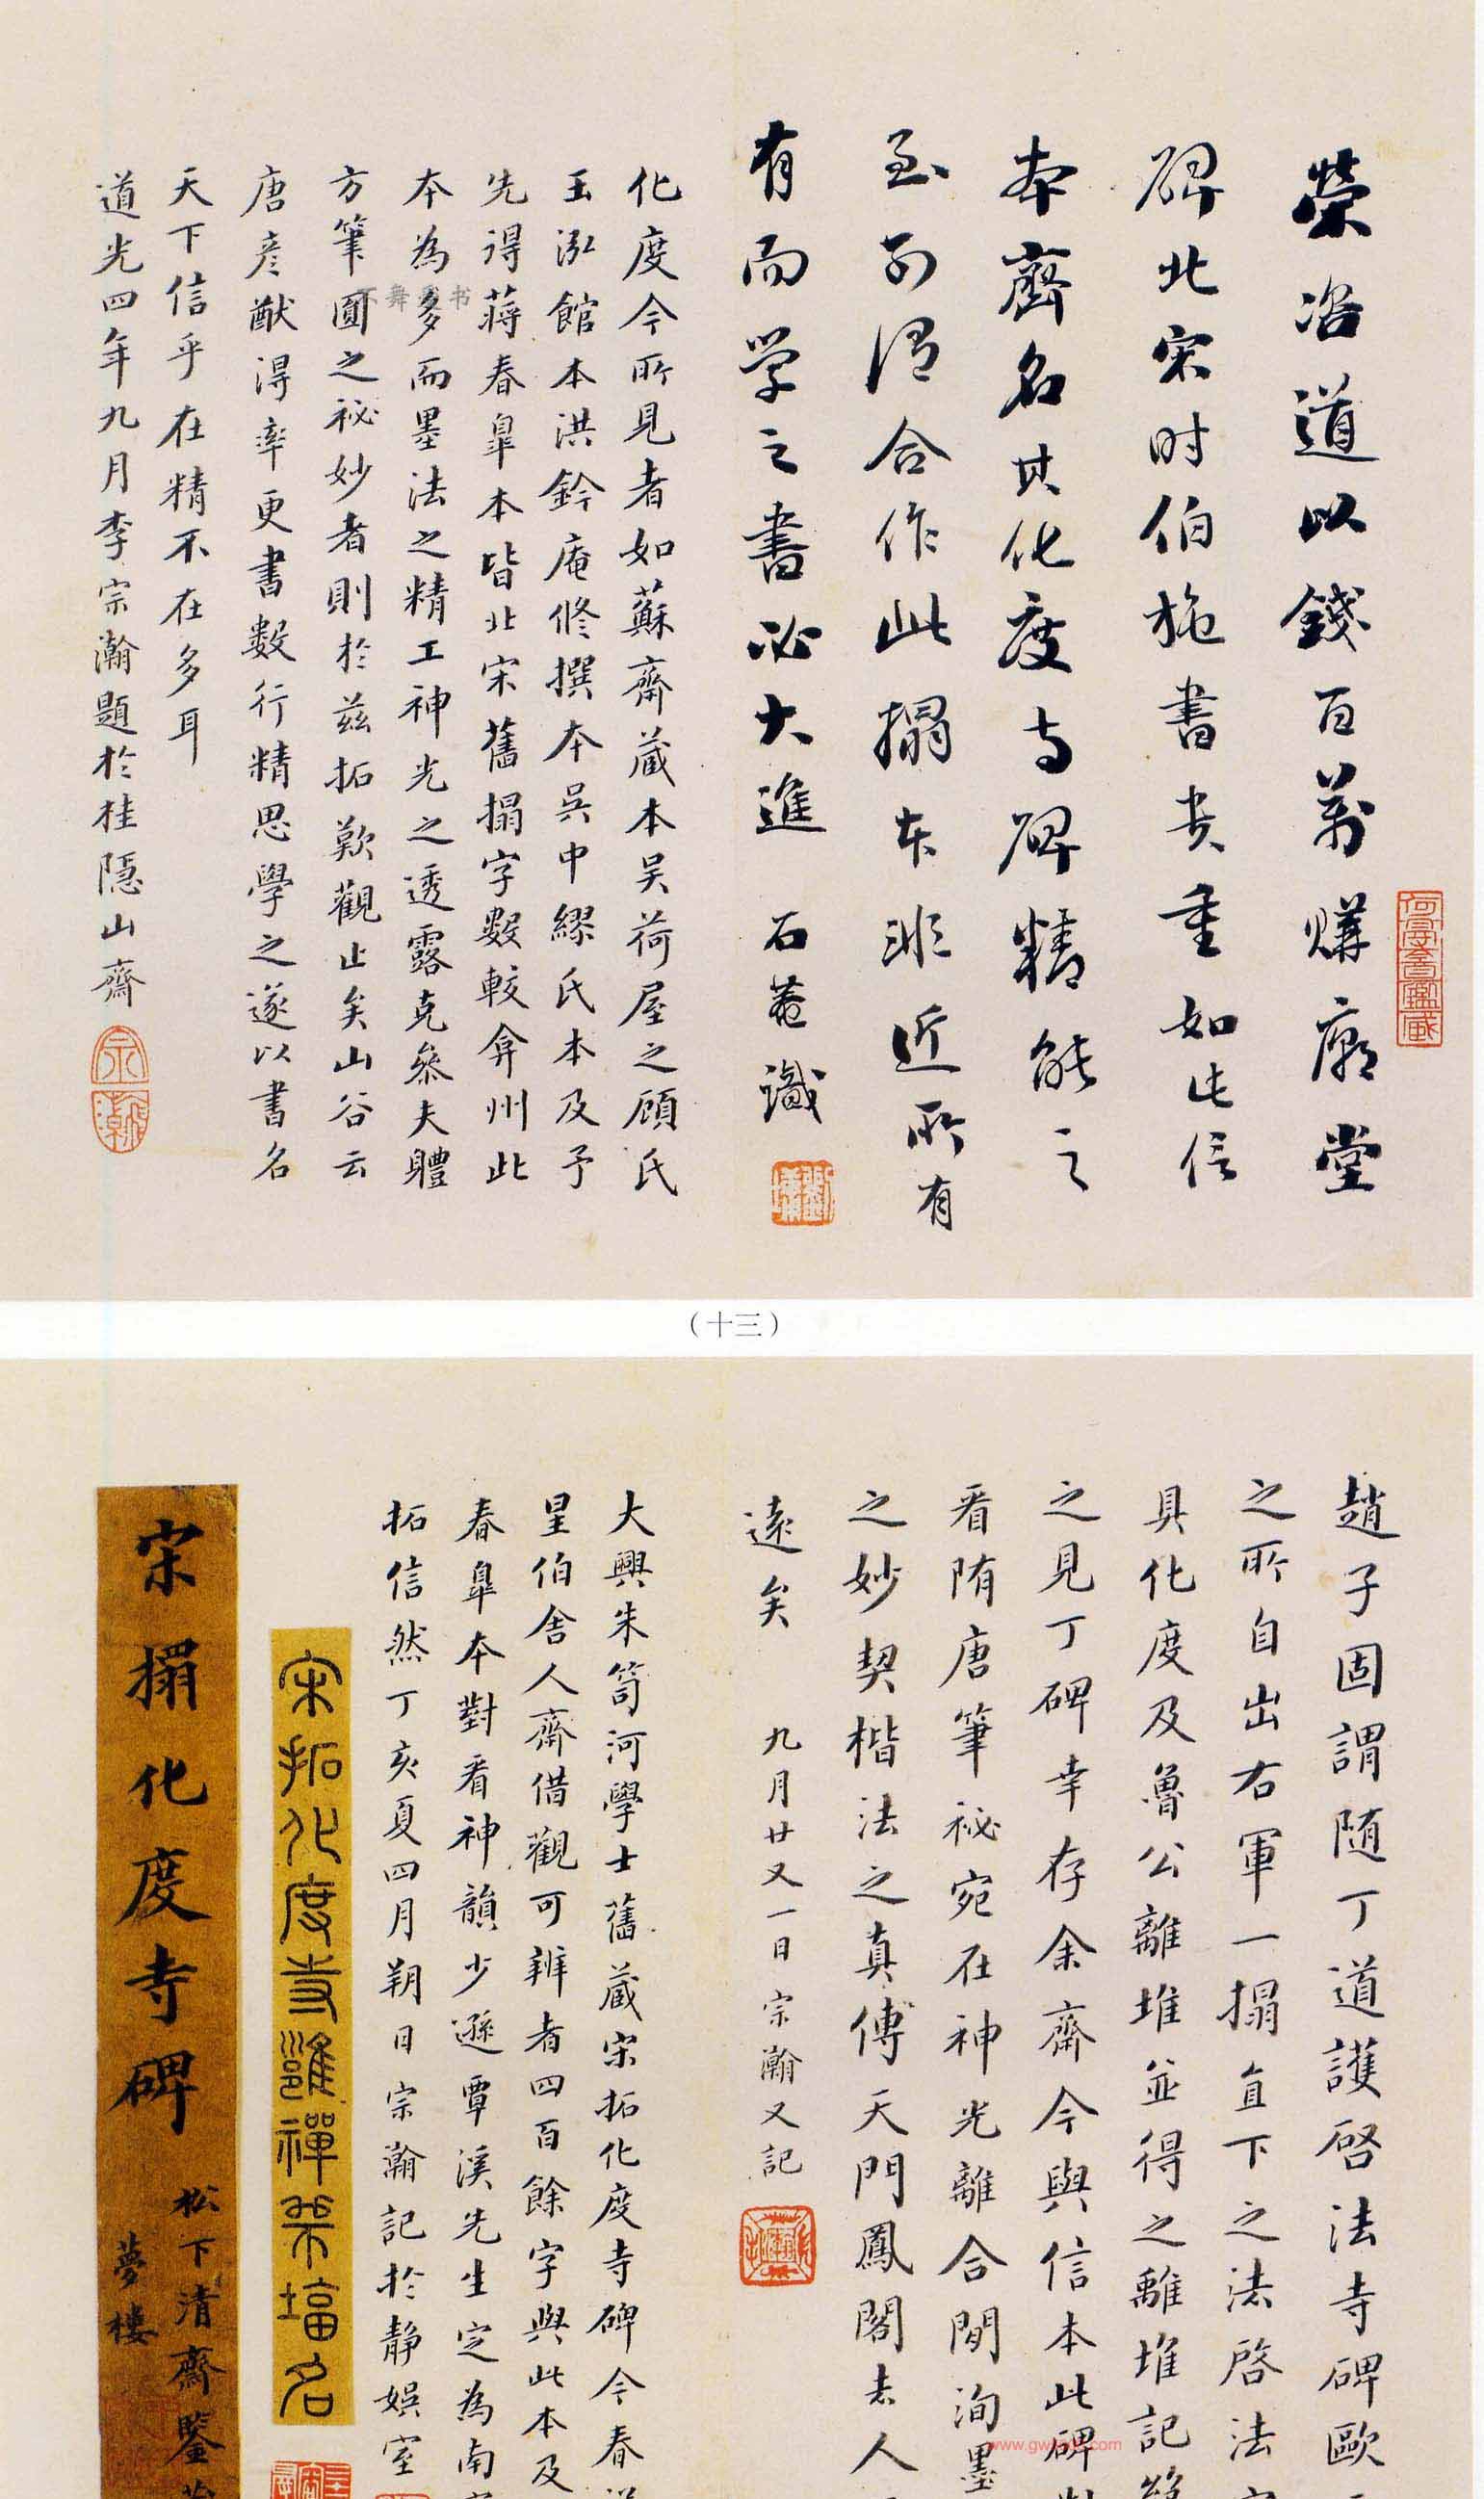 榮咨道以錢百萬購廟堂
碑北宋时伯施書贵重如此信
本齊名其化度寺碑精能之
至可谓合作此搨本非近所有
有而学之書必大進 石菴識
化度今所見者如蘇齋蔵本吴荷屋之顧氏
玉泓館本洪鈐庵修撰本吳中繆氏本及予
先得蒋春皐本皆北宋舊搨字數較弇州此
本為多而墨法之精工神光之透露克叅夫體
方筆圓之祕妙者則於兹拓歎觀止矣山谷云
唐彦猷淂率更書數行精思學之遂以書名
天下信乎在精不在多耳
道光四年九月李宗瀚題於桂隱山齋
(十三)
趙子固謂随丁道護啓法寺碑歐
之所自出右軍一搨直下之法啓法
具化度及魯公離堆並得之離堆記
之見丁碑幸存余齋今與信本此碑
看隋唐筆祕宛在神光離合間洵墨
之妙契楷法之真傳天門鳳閣去人
遠矣 九月廿又一日宗瀚又記
大興朱笥河學士舊蔵宋拓化度寺碑今春
星伯舍人齋借觀可辨者四百餘字與此本及
春皐本對看神韻少遜覃溪先生定為南
拓信然丁亥夏四月朔日宗瀚記於静娱室
宋拓化度寺邕禪師塔名
宋搨化度寺碑
松下清齋鑒
夢樓